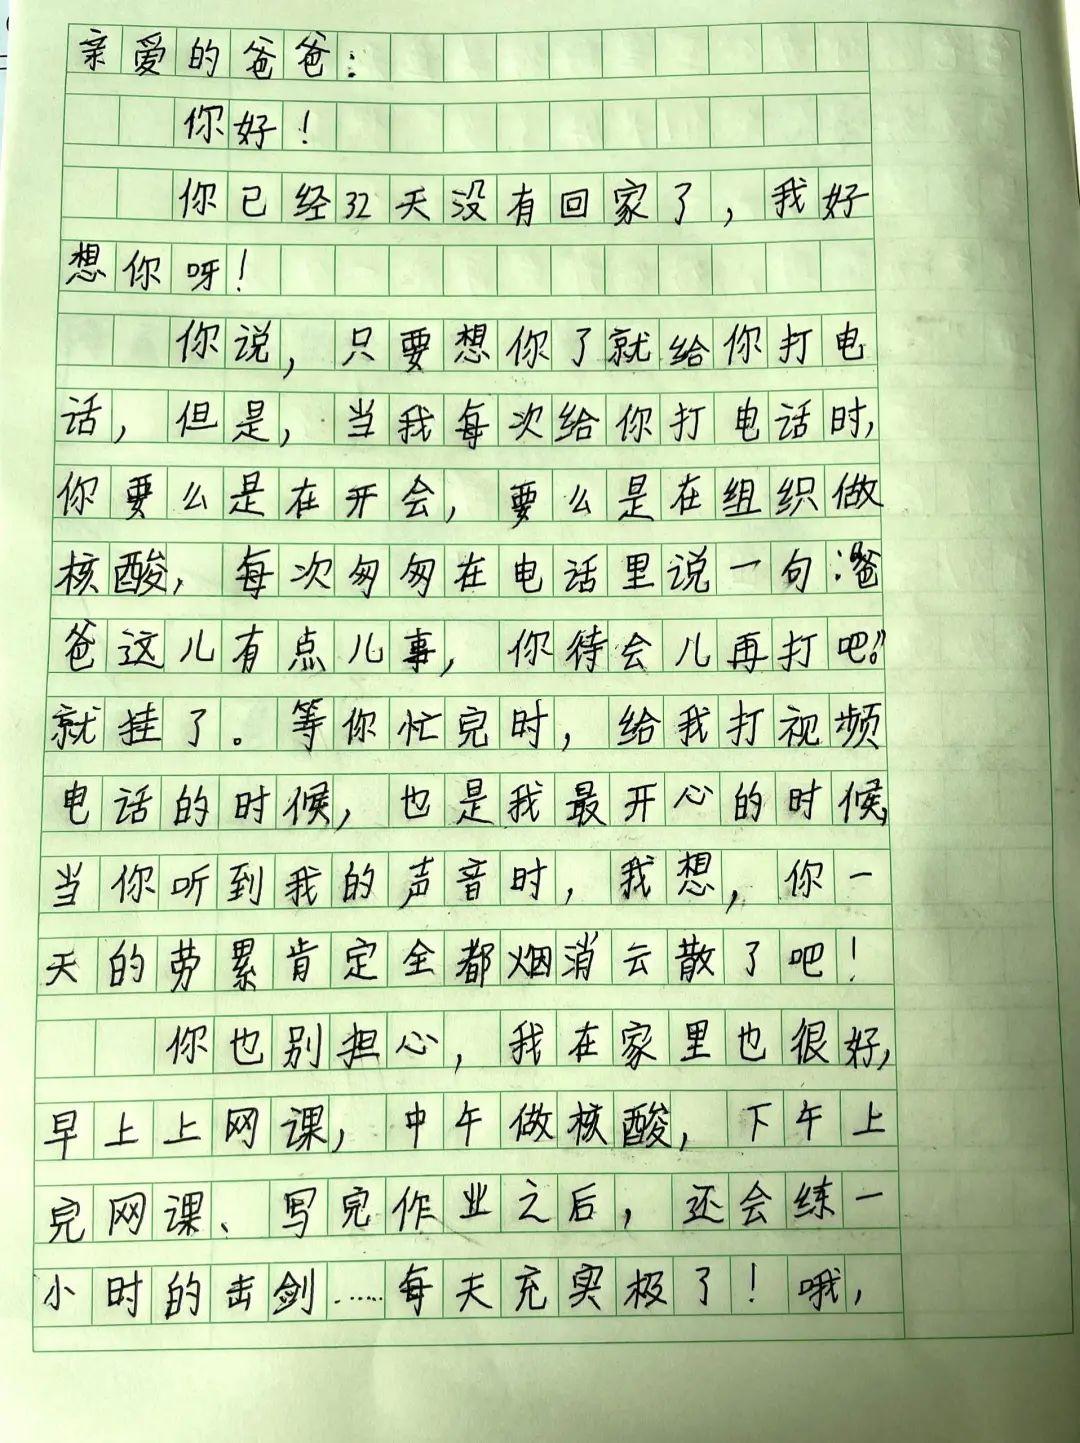 亲爱的爸爸：
你好！
你已经32天没有回家了，我好
想你呀！
你说，只要想你了就给你打电
话，但是，当我每次给你打电话时，
你要么是在开会，要么是在组织做
核酸，每次匆匆在电话里说一句：“爸
爸这儿有点儿事，你待会儿再打吧。”
就挂了。等你忙完时，给我打视频
电话的时候，也是我最开心的时候，
当你听到我的声音时，我想，你一
天的劳累肯定全都烟消云散了吧！
你也别担心，我在家里也很好，
早上上网课，中午做核酸，下午上
完网课、写完作业之后，还会练一
小时的击剑……每天充实极了！哦，